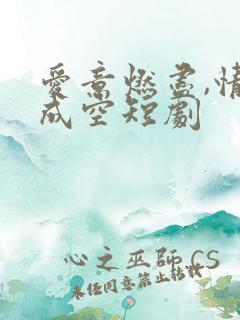 愛意燃盡,情
成空短劇
心之巫師 CS
未经同意禁止转载